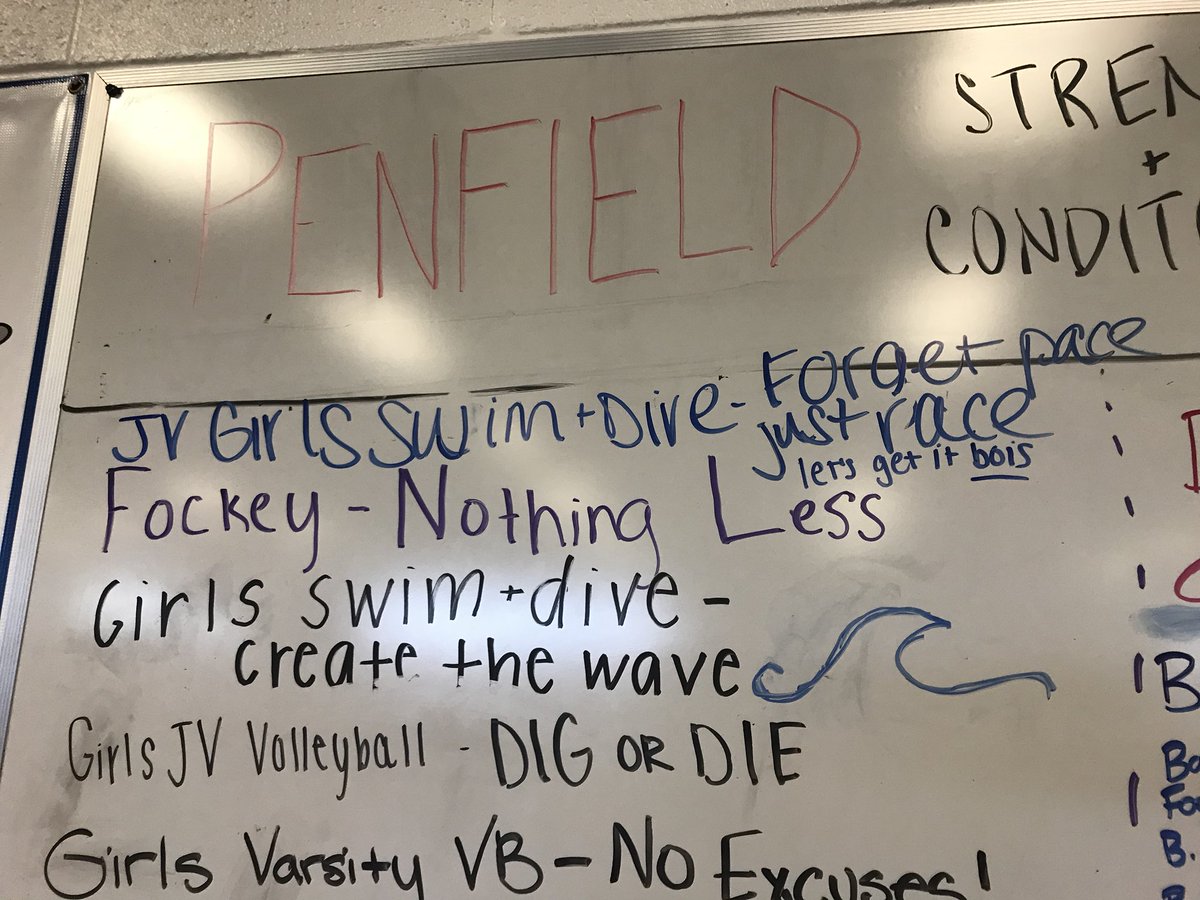 PENFIELD
STREN
+
CONDIT
JV Girls Swim + Dive - Forget pace
just race
let's get it bois
Fockey - Nothing Less
Girls swim + dive -
create the wave
Girls JV Volleyball - DIG OR DIE
Girls Varsity VB - No Excuses!
B
Bo
Fo
B.